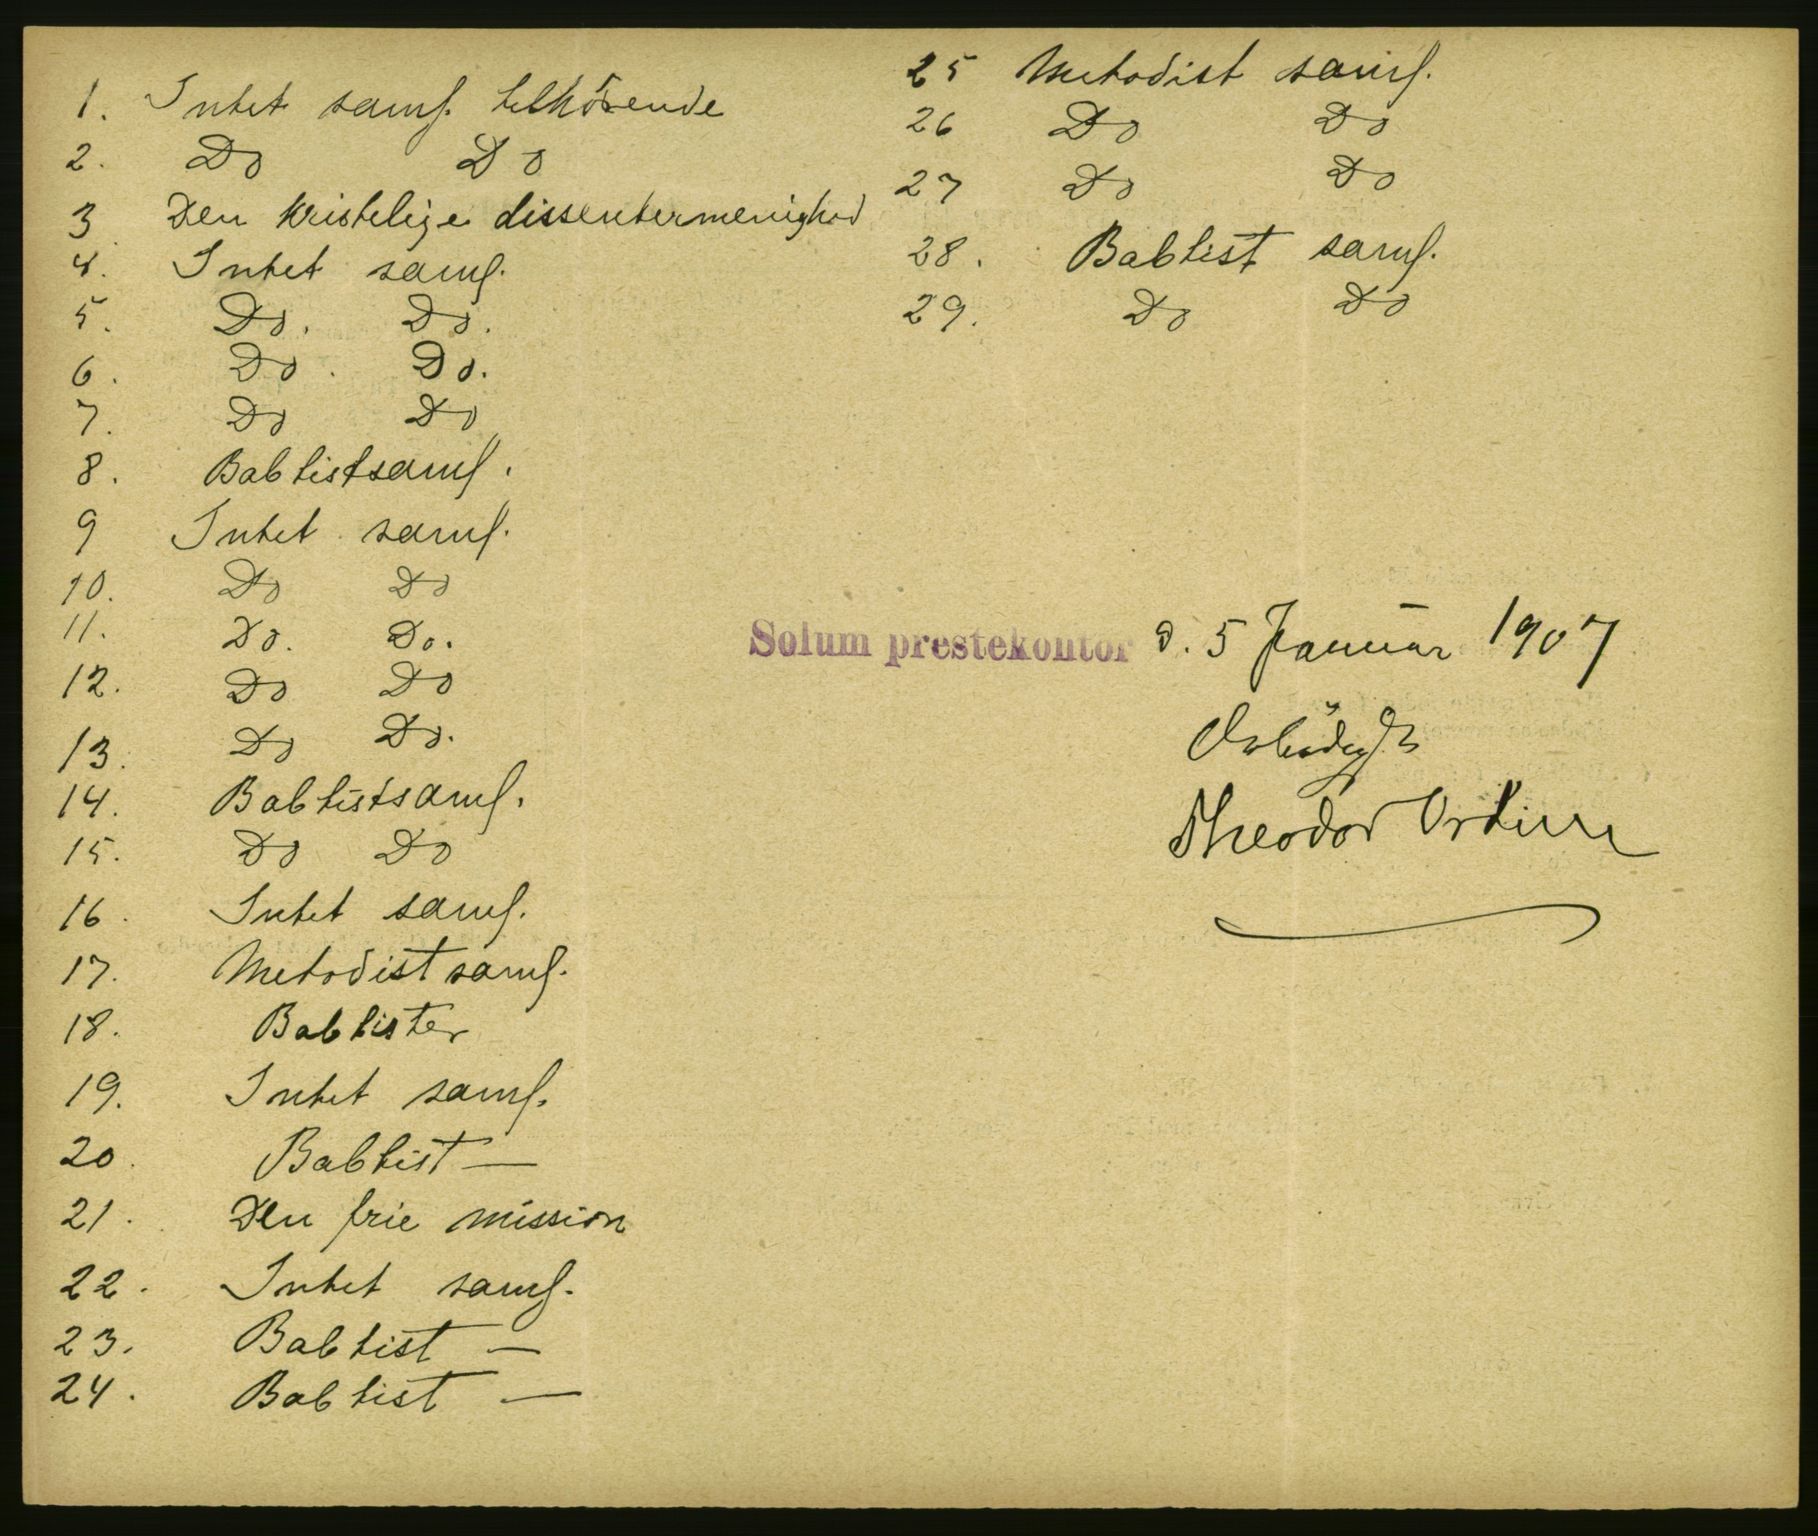 1. Intet samf. tilhörende
2. Do Do
3 Den kristelige dissentermenighed
4. Intet samf.
5. Do. Do.
6. Do. Do.
7. Do Do
8. Babtistsamf.
9 Intet samf.
10. Do Do
11. Do. Do.
12. Do Do
13. Do Do.
14. Babtistsamf.
15. Do Do
16. Intet samf.
17. Metodist samf.
18. Babtister
19. Intet samf.
20. Babtist —
21. Den frie mission
22. Intet samf.
23. Babtist —
24. Babtist —
25 Metodist samf.
26 Do Do
27 Do Do
28. Babtist samf.
29. Do Do
Solum prestekontor d. 5 Januar 1907
Theodor